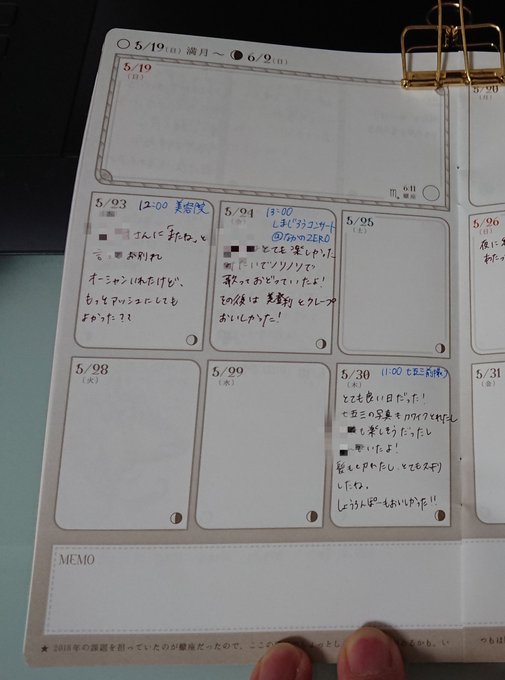 5/19(日) 満月〜 6/2(日)
5/19
(日)
6:11
蠍座
5/20
(月)
5/23
12:00 美容院
さんに「またね」と
お別れ
オーシャンいれたけど、
もっとアッシュにしても
よかった??
5/24
(金)
13:00
しまじろうコンサート
@なかのZERO
とても楽しかった
ノリノリで
歌っておどっていたよ!
その後は とクレープ
おいしかった!
5/25
(土)
5/26
(日)
夜に
わたっ
5/28
(火)
5/29
(水)
5/30
(木)
11:00 七五三前撮り
とても良い日だった!
七五三の写真もカワイクとれたし
も楽しそうだったし
いたよ!
髪も したし、とてもスッキリ
したね。
しょうろんぽーもおいしかった!!
5/31
(金)
MEMO
★2018年の課題を担っていたのが蠍座だったので、ここの